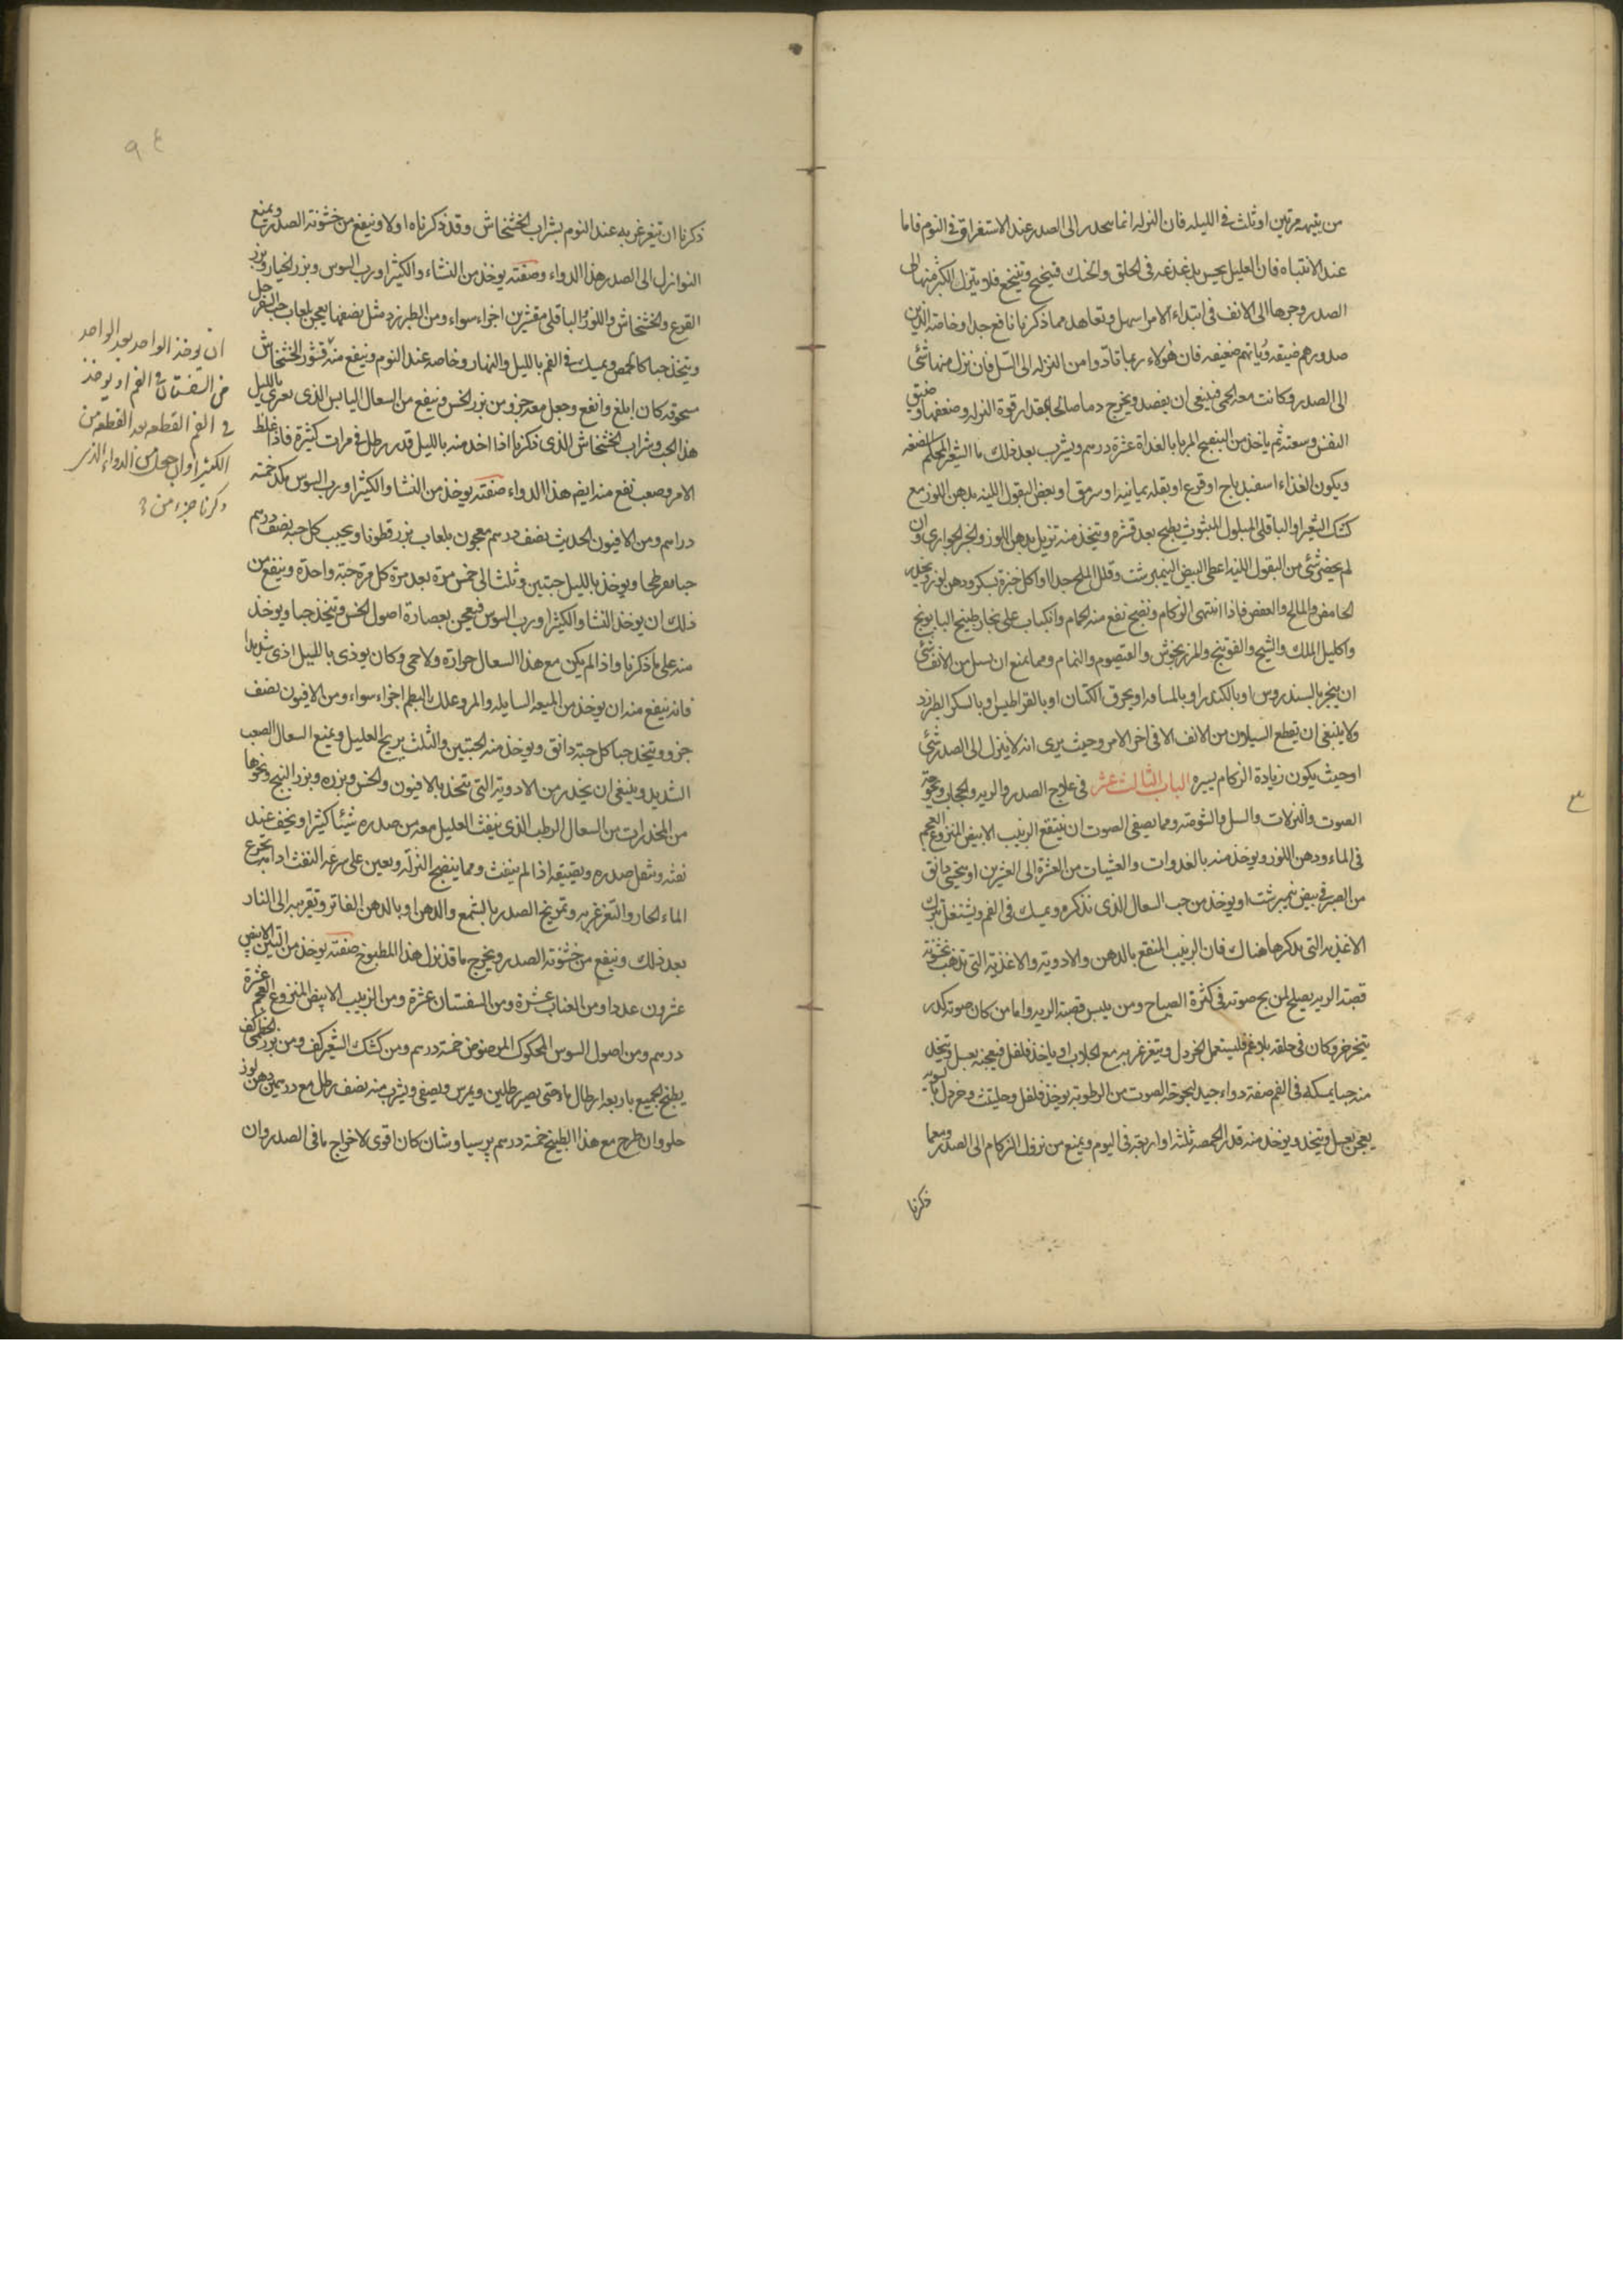 من ينبهه مرتين او ثلث فى الليله فان النزله انما تنحدر الى الصدر عند الاستغراق فى النوم فاما
عند الانتباه فان العليل يحس بدغدغه فى الحلق والحنك فيتنحنح ويتنخع فلا ينزل اكثر منها الى
الصدر وجرها الى الانف فى ابتداء الامر اسهل وتعاهد مما ذكرنا نافع جدا وخاصة الذين
صدورهم ضيقه ورياتهم ضعيفه فان هولاء ربما تادوا من النزله الى السل فان نزل منها شئ
الى الصدر وكانت معه الحمى فينبغى ان يفصد ويخرج دما صالحا بمقدار قوة النزله وضعفها وضيق
النفس وسعته ثم ياخذ من البنفسج المربا بالغداة عشرة درسم ويشرب بعد ذلك ما الشعير المحكم الصنعه
ويكون الغذاء اسفيدباج او قرع او بقله يمانيه او سرمق او بعض البقول اللينه بدهن اللوز مع
كشك الشعير او الباقلى المبلول المبثوث يطبخ بعد قشره ويتخذ منه تنزيل بدهن اللوز والخبز الحوارى وان
لم يحضر شئ من البقول اللينه اعطى البيض النيمبرشت وقلل الملح جدا او اكل خبزه بسكر ودهن لوز ويحذر
الحامض والمالح والعفص فاذا انتهى الزكام ونضج نفع منه الحمام وانكباب على بخار طبيخ البابونج
واكليل الملك والشيح والفوتنج والمرزنجوش والقيصوم والنمام ومما يمنع ان يسيل من الانف شئ
ان يبخر بالسندروس او بالكندر او بالمسافه او بحرق الكتان او بالقراطيس او بالسكر الطبرزد
ولا ينبغى ان يقطع السيلان من الانف الا فى اخر الامر وحيث يرى انه لا ينزل الى الصدر شئ
او حيث يكون زيادة الزكام يسيره الباب الثالث عشر فى علاج الصدر والريه والحجاب وبحوحة
الصوت والنزلات والسل والشوصه ومما يصفى الصوت ان ينتقع الزبيب الابيض المنزوع العجم
فى الماء ودهن اللوز ويوخذ منه بالغدوات والعشيات من العشرة الى العشرين او يتحسى دانق
من الصبر فى بيض نيمبرشت او يوخذ من حب السعال الذى نذكره ويمسك فى الفم ويشتغل بترك
الاغذيه التى نذكرها هناك فان الزبيب المنقع بالدهن والادوية والاغذية التى تذهب بخشونة
قصبة الريه يصلح لمن بح صوته فى كثرة الصياح ومن يبس قصبة الريه واما من كان صوته كدر
يتخرخر وكان فى حلقه بلاغم فليستعمل الخردل ويتغرغر به مع الجلاب او ياخذ فلفل فيعجنه بعسل ويتخذ
منه حبا يمسكه فى الفم صفة دواء جيد لبحوحة الصوت من الرطوبة يوخذ فلفل وحلتيث وخردل بالسويه
يعجن بعسل ويتخذ ويوخذ منه قدر الحمصه ثلثة او اربعة فى اليوم ويمنع من نزول الزكام الى الصدر ومما
ذكرنا
ذكرنا ان يتغرغر به عند النوم بشراب الخشخاش وقد ذكرناه اولا وينفع من خشونة الصدر ويمنع
النوازل الى الصدر هذا الدواء وصفته يوخذ من النشاء والكثيرا ورب السوس وبزر الخيار وبزر
القرع والخشخاش واللوز والباقلى مقشرين اجزاء سواء ومن الطبرزد مثل نصفها يعجن بلعاب حب السفرجل
ويتخذ حبا كالحمص ويمسك فى الفم بالليل والنهار وخاصه عند النوم وينفع منه قشور الخشخاش
مسحوقه كان ابلغ وانفع وجعل معه جزو من بزر الخس وينفع من السعال اليابس الذى يعرى بالليل
هذا الحب وشراب الخشخاش الذى ذكرنا اذا اخذ منه بالليل قدر رطل فى مرات كثيرة فاذا غلظ
الامر وصعب نفع منه ايضم هذا الدواء صفته يوخذ من النشا والكثيرا ورب السوس مكد خمسه
دراسم ومن الافيون الحديث نصف درسم معجون بلعاب بزر قطونا ويحبب كل حبه نصف درسم
حبا مفرطحا ويوخذ بالليل حبتين وثلث الى خمس مرة بعد مرة كل مرة حبة واحدة وينفع من
ذلك ان يوخذ النشا والكثيرا ورب السوس فيعجن بعصارة اصول الخس ويتخذ حبا ويوخذ
منه على ما ذكرنا واذا لم يكن مع هذا السعال حرارة ولا حمى وكان يوذى بالليل اذى شديدا
فانه ينفع منه ان يوخذ من الميعه السايله والمر وعلك البطم اجزاء سواء ومن الافيون نصف
جزو ويتخذ حبا كل حبة دانق ويوخذ منه الحبتين والثلث يريح العليل ويمنع السعال الصعب
الشديد وينبغى ان يحذر من الادوية التى تتخذ بالافيون والخس وبزره وبزر البنج ونحوها
من المخدرات من السعال الرطب الذى ينفث العليل معه من صدره شيئا كثيرا ويخف عند
نفثه وثقل صدره ويضيقه اذا لم ينفث ومما ينضج النزله ويعين على سرعة النفث ادامة تجرع
الماء الحار والتغرغر به وتمريخ الصدر بالشمع والدهن او بالدهن الفاتر وتقريبه الى النار
بعد ذلك وينفع من خشونة الصدر ويخرج ما قد نزل هذا المطبوخ صفته يوخذ من التين الابيض
عشرون عددا ومن العناب عشرة ومن السفستان عشرة ومن الزبيب الابيض المنزوع العجم عشرة
درسم ومن اصول السوس المحكوك المرضوض خمسة درسم ومن كشك الشعير كف ومن بزر الخطمى كف
يطبخ الجميع باربعة ارطال ماء حتى يصير رطلين ويمرس ويصفى ويشرب منه نصف رطل مع درسمين دهن لوز
حلو وان طرح مع هذا الطبيخ خمسة درسم برسياوشان كان اقوى لاخراج ما فى الصدر وان
ان يوخذ الواحد بعد الواحد
من السفستان فى الفم او يوخذ
فى الفم القطعه بعد القطعه من
الكثيرا وان جعل من الدواء الذى
ذكرنا جزء من
٩٤